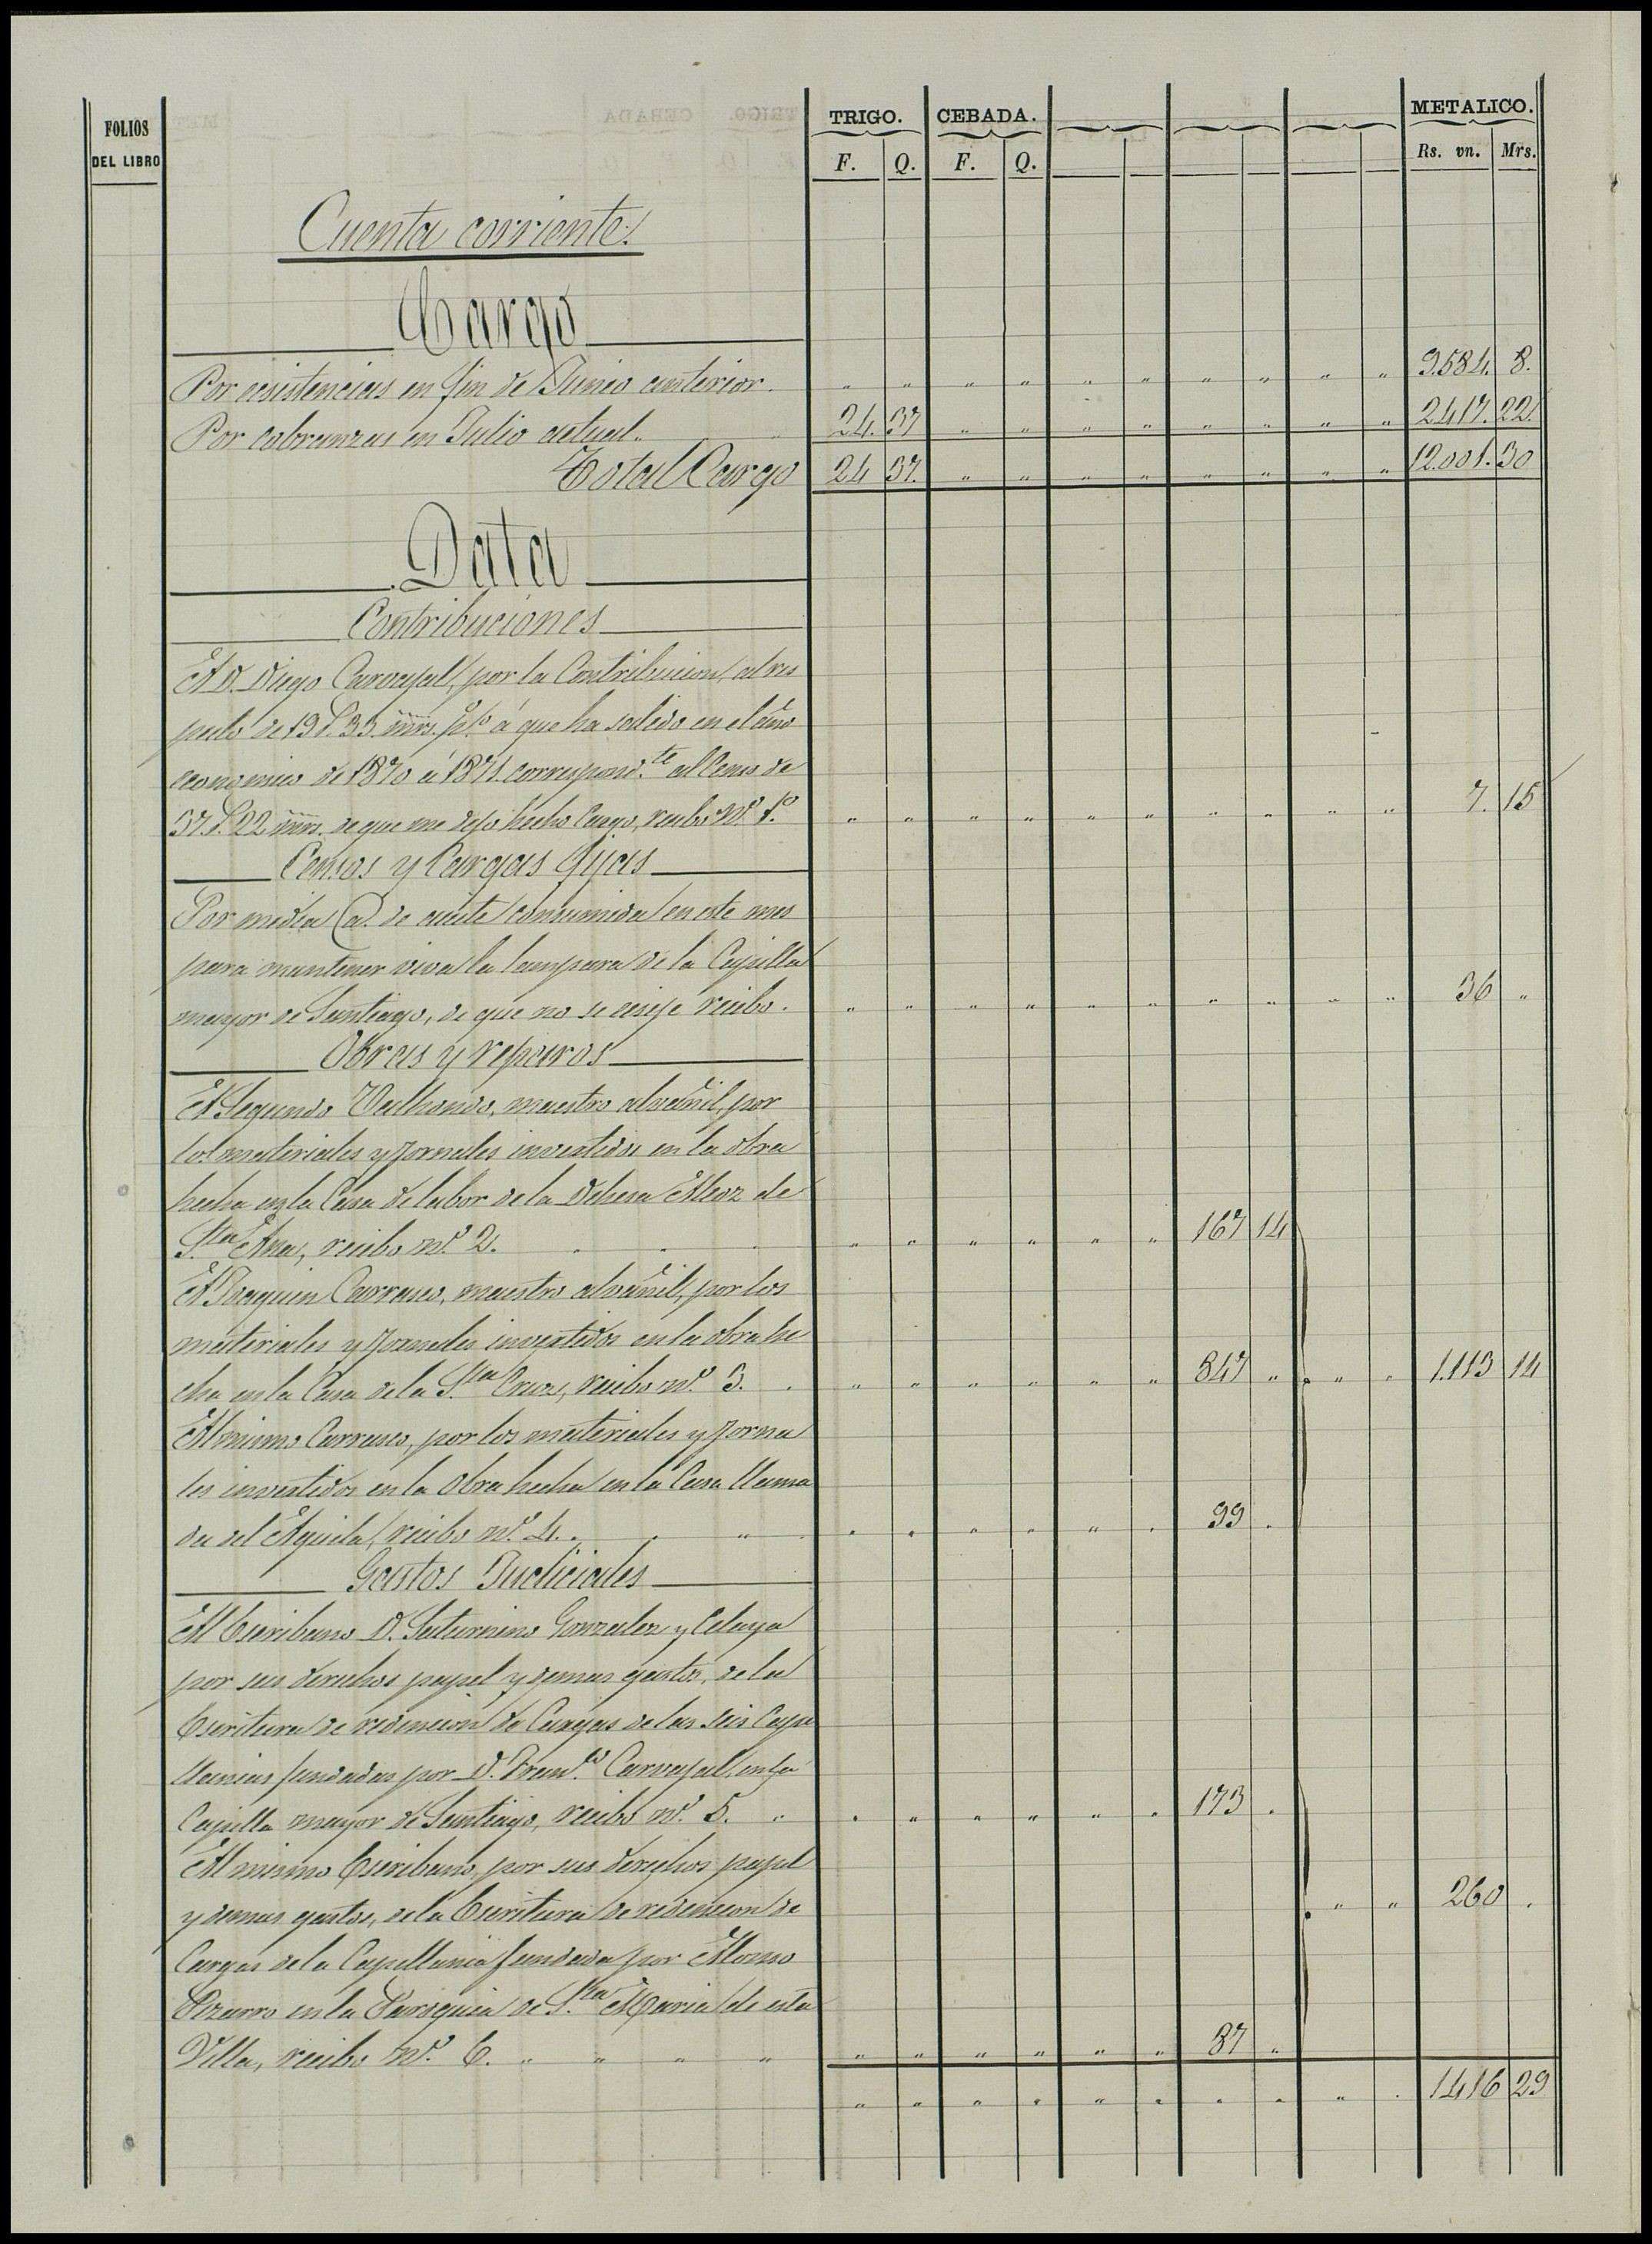 FOLIOS
DEL LIBRO
TRIGO. CEBADA. METALICO.
F. Q. F. Q. Rs. vn. Mrs.
Cuenta corriente.
Cargo
Por esistencias en fin de Junio anterior. " " " " " " " " " " 9.584. 8.
Por cobranzas en Julio actual. " 24. 37 " " " " " " " " 2417. 22.
Total Cargo 24 37. " " " " " " " " 12.001. 30
Data
Contribuciones
A D. Diego Carvajal, por la Contribucion, al res
pecto de 19 r.s 33 mrs. p.% á que ha salido en el año
economico de 1870 á 1871. correspond.te al Censo de
37 r.s 22 mrs. de que me dejo hecho Cargo, recibo nº 1.º " " " " " " " " " " 7. 15
Censos y Cargas fijas
Por media @. de aceite consumida en este mes
para mantener viva la lampara de la Capilla
mayor de Santiago, de que no se exije recibo. " " " " " " " " " " 36 "
Obras y reparos
A Segundo Valhondo, maestro alvañil, por
los materiales y jornales invertidos en la obra
hecha en la Casa de labor de la Dehesa Alcoz de
S.ta Ana, recibo nº 2. " " " " " " 167 14
A Joaquin Carrasco, maestro alvañil, por los
materiales y jornales invertidos en la obra he
cha en la Casa de la S.ta Cruz, recibo nº 3. " " " " " " 847 " " " 1.113 14
Al mismo Carrasco, por los materiales y jorna
les invertidos en la obra hecha en la Casa llama
da del Aguila, recibo nº 4. " " " " " " 99 "
Gastos Judiciales
Al Escribano D. Saturnino Gonzalez y Celaya
por sus derechos papel y demas gastos, de la
Escritura de redencion de Cargas de las seis Cape
llanias fundadas por D. Fran.co Carvajal, en la
Capilla mayor de Santiago, recibo nº 5. " " " " " " " 173 "
Al mismo Escribano, por sus derechos papel
y demas gastos, de la Escritura de redencion de " " 260 "
Cargas de la Capellania fundada por Alonso
Pizarro en la Parroquia de S.ta Maria de esta
Villa, recibo nº. 6. " " " " " " " " " " 87 "
" " " " " " " " " " 1416 29